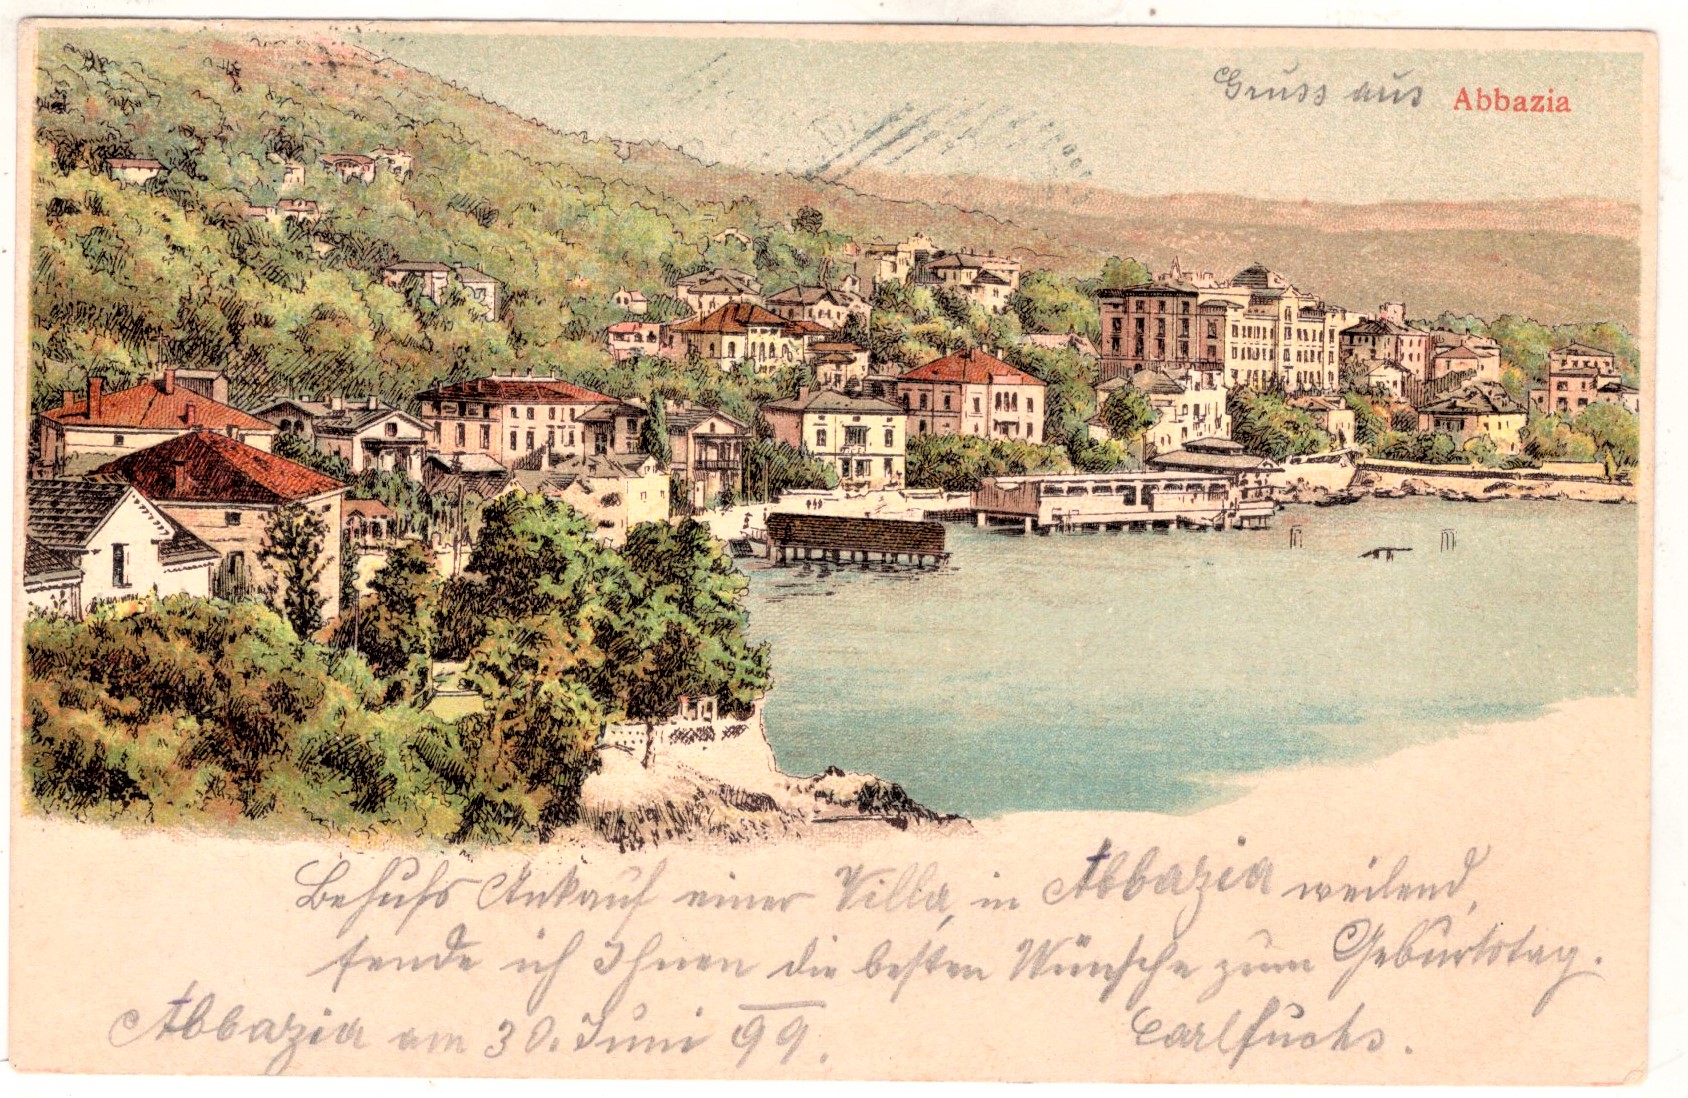 Gruss aus Abbazia
Behufs Ankauf einer Villa, in Abbazia weilend,
sende ich Ihnen die besten Wünsche zum Geburtstag.
Abbazia am 30. Juni 99. Carl Fuchs.